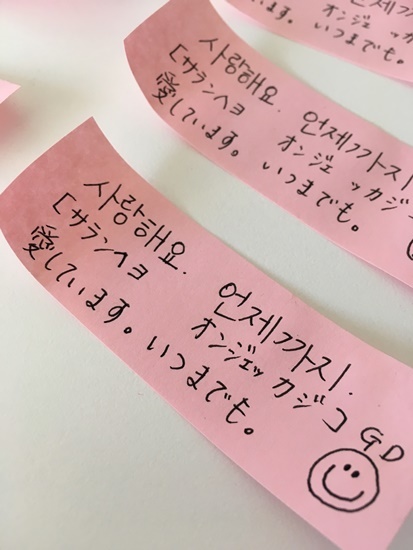 オンジェッカ
ます。いつまでも。
사랑해요. 언제까지.
[サランヘヨ オンジェッカジ
愛しています。いつまでも。
사랑해요. 언제까지.
[サランヘヨ オンジェッカジ]
愛しています。いつまでも。
GD